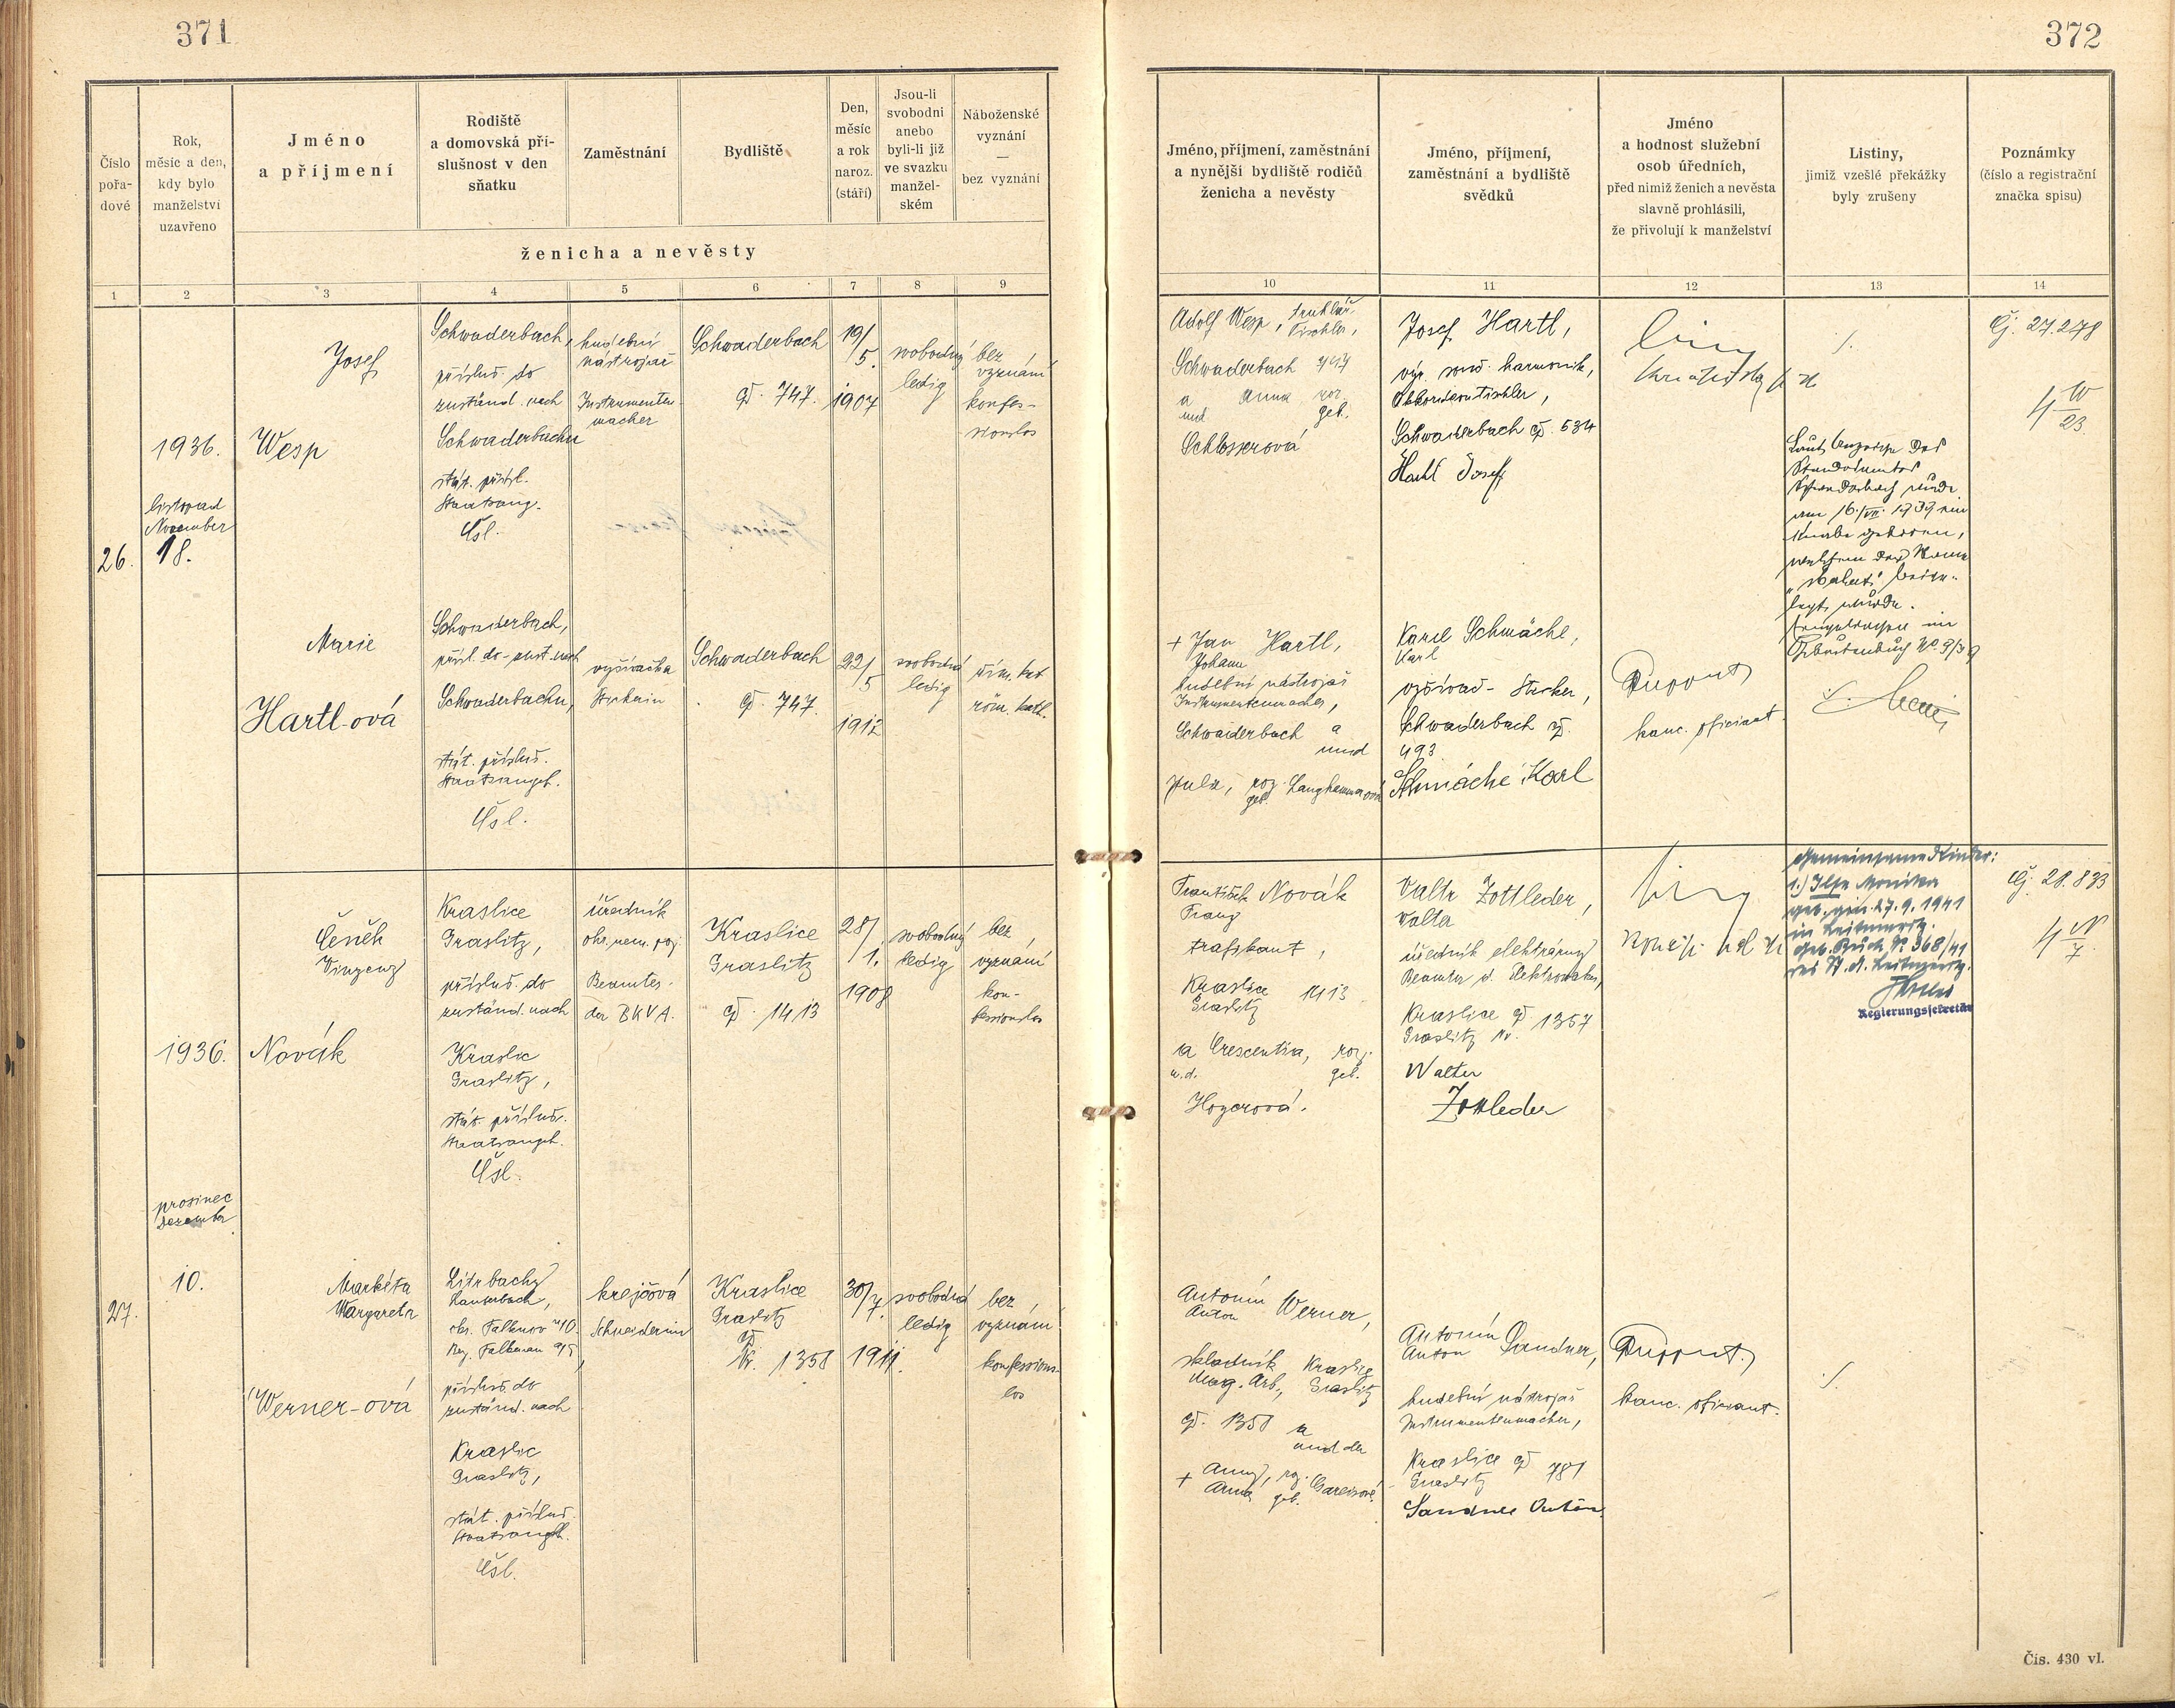 371
372
Číslo
pořa-
dové
Rok,
měsíc a den,
kdy bylo
manželství
uzavřeno
Jméno
a příjmení
Rodiště
a domovská pří-
slušnost v den
sňatku
Zaměstnání
Bydliště
Den,
měsíc
a rok
naroz.
(stáří)
Jsou-li
svobodni
anebo
byli-li již
ve svazku
manžel-
ském
Náboženské
vyznání
—
bez vyznání
ženicha a nevěsty
1 2 3 4 5 6 7 8 9
Jméno, příjmení, zaměstnání
a nynější bydliště rodičů
ženicha a nevěsty
Jméno, příjmení,
zaměstnání a bydliště
svědků
Jméno
a hodnost služební
osob úředních,
před nimiž ženich a nevěsta
slavně prohlásili,
že přivolují k manželství
Listiny,
jimiž vzešlé překážky
byly zrušeny
Poznámky
(číslo a registrační
značka spisu)
10 11 12 13 14
26.
1936.
listopad
November
18.
Josef
Wesp
Schwaderbach,
přísluš. do
zuständ. nach
Schwaderbachu
stát. přísl.
Staatsang.
Čsl.
hudební
nástrojař
Instrumenten-
macher
Schwaderbach
čp. 747.
19/
5.
1907
svobodný
ledig
bez
vyznání
konfes-
sionslos
Adolf Wesp, truhlář
Tischler,
Schwaderbach 747
a Anna roz.
und geb.
Schlosserová
Josef Hartl,
výr. souč. harmonik,
Akkordeontischler,
Schwaderbach čp. 534
Hartl Josef
./.
Čj. 27.278
4 W
23.
Laut Anzeige des
Standesamtes
Schwaderbach wurde
am 16./VII. 1939 ein
Knabe geboren,
welchem der Name
beige-
legt wurde.
Eingetragen im
Geburtenbuch No. 9/39
Marie
Hartl-ová
Schwaderbach,
přísl. do-zust. nach
Schwaderbachu,
stát. přísluš.
Staatsangeh.
Čsl.
vyšívačka
Stickerin
Schwaderbach
čp. 747.
22/
5
1912
svobodná
ledig
řím. kat.
röm. kath.
+ Jan Hartl,
Johann
hudební nástrojař
Instrumentenmacher,
Schwaderbach a
und
roz. Langhammerová
geb.
Karel Schmäche,
Karl
vyšívač - Sticker,
Schwaderbach čp.
493
Schmäche Karl
Ruppert
kanc. oficiant.
27.
1936.
prosinec
Dezember
10.
Čeněk
Vinzenz
Novák
Kraslice
Graslitz,
přísluš. do
zuständ. nach
Kraslic
Graslitz,
stát. přísluš.
Staatsangeh.
Čsl.
úředník
okr. nem. poj.
Beamter
der BKVA.
Kraslice
Graslitz
čp. 1413
28/
1.
1908
svobodný
ledig
bez
vyznání
kon-
fessionslos
František Novák
Franz
trafikant,
Kraslice 1413
Graslitz
a Crescentia, roz.
u. d. geb.
Hoyerová.
Valtr Zottleder,
Valter
úředník elektrárny
Beamter d. Elektrowerkes,
Kraslice čp 1357
Graslitz Nr.
Walter
Zottleder
Gemeinsame Kinder:
1.) Ilse Monika
geb. am 27.9.1941
in Leitmeritz.
Geb. Buch Nr. 368/41
des St. A. Leitmeritz.
Regierungssekretär
Čj. 28.833
4 N
7.
Markéta
Margareta
Werner-ová
Litrbachy
Lauterbach,
okr. Falknov n/O.
Bez. Falkenau a/E,
přísluš. do
zuständ. nach
Kraslic
Graslitz,
stát. přísluš.
Staatsangh.
Čsl.
krejčová
Schneiderin
Kraslice
Graslitz
čp
Nr. 1358
30/
7.
1911.
svobodná
ledig
bez
vyznání
konfessions-
los
Antonín
Anton Werner,
skladník Kraslice
Mag. Arb., Graslitz
čp. 1358 a
und der
+ Anny, roz. Gareisové.
Anna geb.
Antonín
Anton Sandner,
hudební nástrojař
Instrumentenmacher,
Kraslice čp 781
Graslitz
Sandner Anton
Ruppert
kanc. oficiant.
./.
Čís. 430 vl.